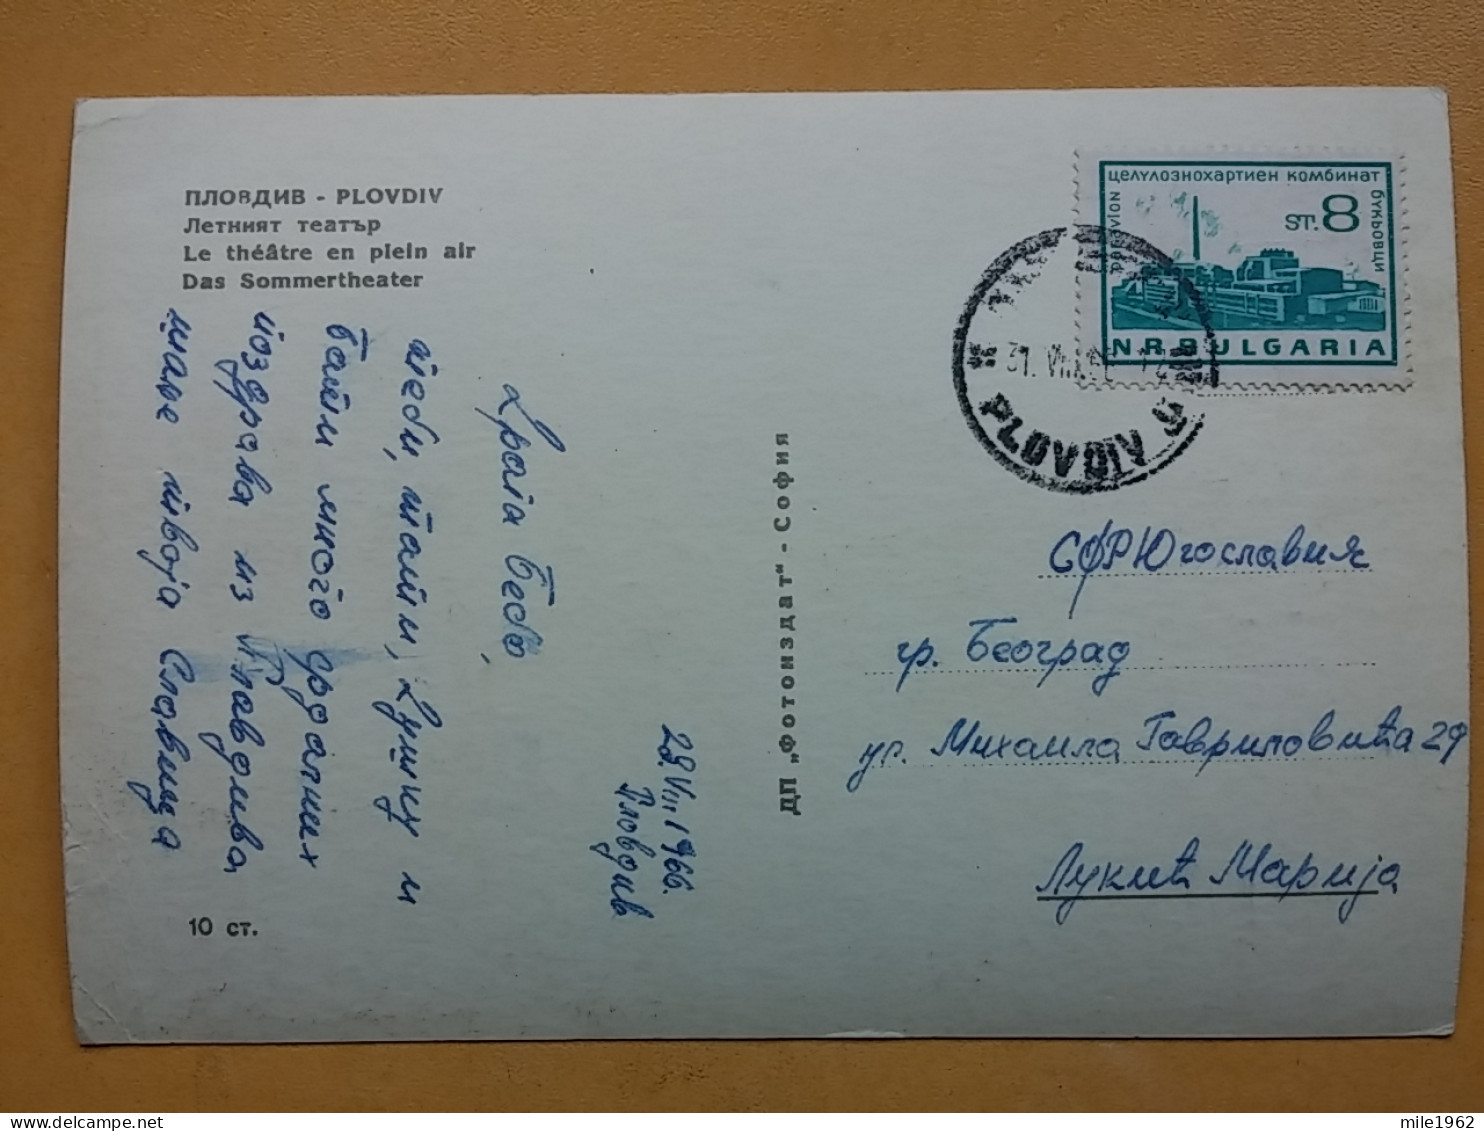 ПЛОВДИВ - PLOVDIV
Летният театър
Le théâtre en plein air
Das Sommertheater
Драга Бебо,
теби, тати, Душку и
бати много срдачних
поздрава из Пловдива,
шаље твоја Славица
28 VIII 1966.
Пловдив
10 ст.
ДП „Фотоиздат" - София
ЦЕЛУЛОЗНОХАРТИЕН КОМБИНАТ
БУКЬОВЦИ
PAR AVION
ST. 8
N R BULGARIA
31. VIII
PLOVDIV
СФРЮгославия
гр. Београд
ул. Михаила Гавриловића 29
Лукић Марија
mile1962